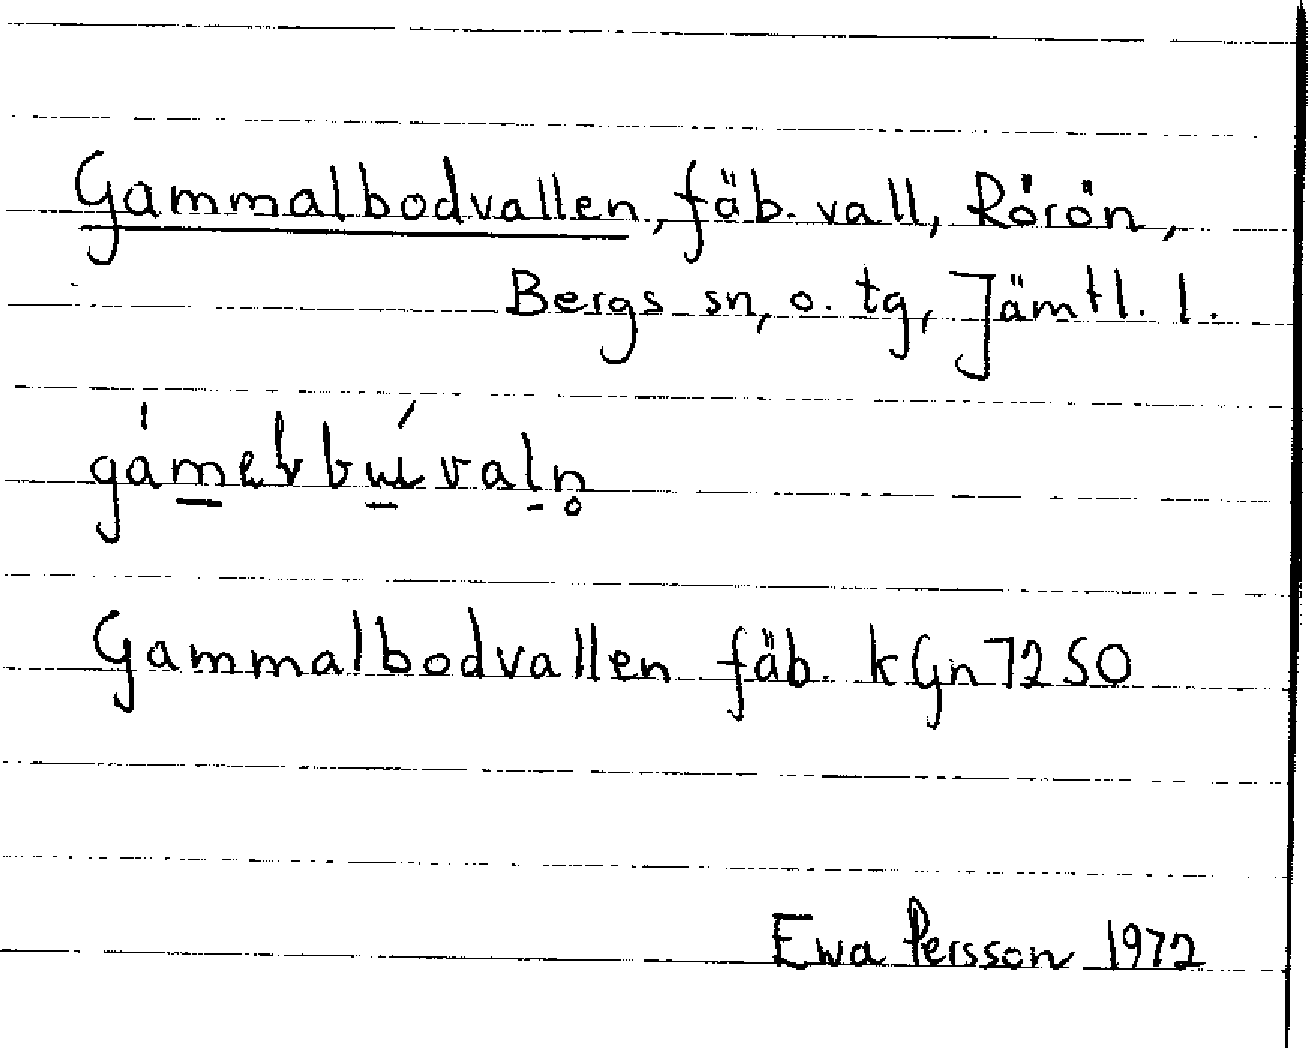 Gammalbodvallen, fäb. vall, Rörön,
Bergs sn, o. tg, Jämtl. l.
Gammalbodvallen fäb. kGn7250
Ewa Persson 1972